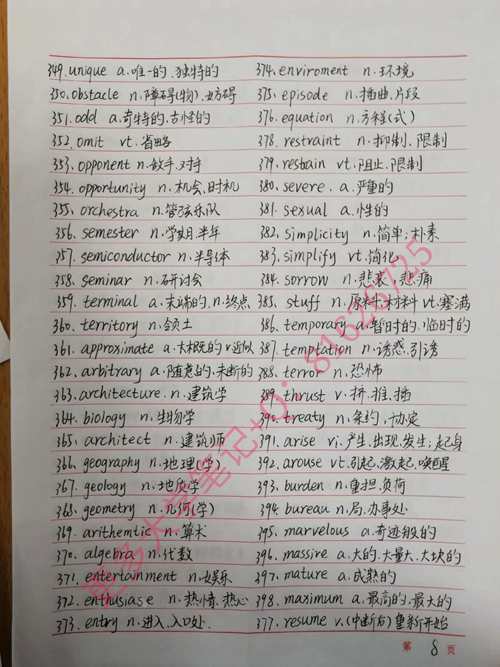 349. unique a. 唯一的、独特的
350. obstacle n. 障碍(物)、妨碍
351. odd a. 奇特的、古怪的
352. omit vt. 省略
353. opponent n. 敌手、对手
354. opportunity n. 机会、时机
355. orchestra n. 管弦乐队
356. semester n. 学期、半年
357. semiconductor n. 半导体
358. seminar n. 研讨会
359. terminal a. 末端的、n. 终点
360. territory n. 领土
361. approximate a. 大概的 v. 近似
362. arbitrary a. 随意的、未断的
363. architecture. n. 建筑学
364. biology n. 生物学
365. architect n. 建筑师
366. geography n. 地理(学)
367. geology n. 地质学
368. geometry n. 几何(学)
369. arithemtic n. 算术
370. algebra n. 代数
371. entertainment n. 娱乐
372. enthusiase n. 热情、热心
373. entry n. 进入、入口处.
374. enviroment n. 环境
375. episode n. 插曲、片段
376. equation n. 方程(式)
378. restraint n. 抑制、限制
379. restrain vt. 阻止、限制
380. severe. a. 严重的
381. sexual a. 性的
382. simplicity n. 简单; 朴素
383. simplify vt. 简化
384. sorrow n. 悲哀, 悲痛
385. stuff n. 原料、材料 vt. 塞满
386. temporary a. 暂时的、临时的
387. temptation n. 诱惑、引诱
388. terror n. 恐怖
389. thrust v. 挤、推、插
390. treaty n. 条约、协定
391. arise vi. 产生、出现、发生; 起身
392. arouse vt. 引起、激起、唤醒
393. burden n. 重担、负荷
394. bureau n. 局、办事处
395. marvelous a. 奇迹般的
396. massive a. 大的、大量大、大块的
397. mature a. 成熟的
398. maximum a. 最高的、最大的
377. resume v. (中断后) 重新开始
第 8 页
更多大学笔记+Q: 81626725